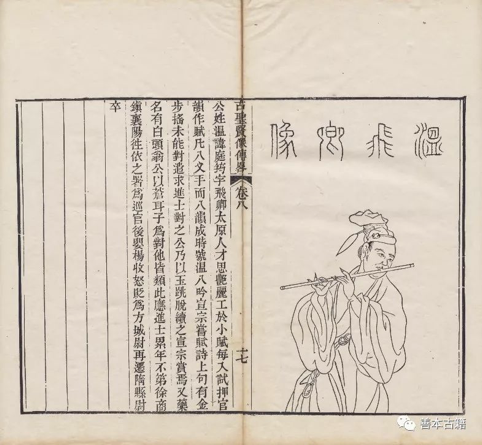 溫飛卿像
古聖賢像傳畧 卷八 十七
公姓溫諱庭筠字飛卿太原人才思艷麗工於小賦每入試押官
韻作賦凡八叉手而八韻成時號溫八吟宣宗嘗賦詩上句有金
步搖未能對遣求進士對之公乃以玉跳脫續之宣宗賞焉又藥
名有白頭翁公以蒼耳子爲對他皆類此應進士累年不第徐商
鎮襄陽往依之署爲巡官後嬰楊收怒貶爲方城尉再遷隋縣尉
卒
善本古籍